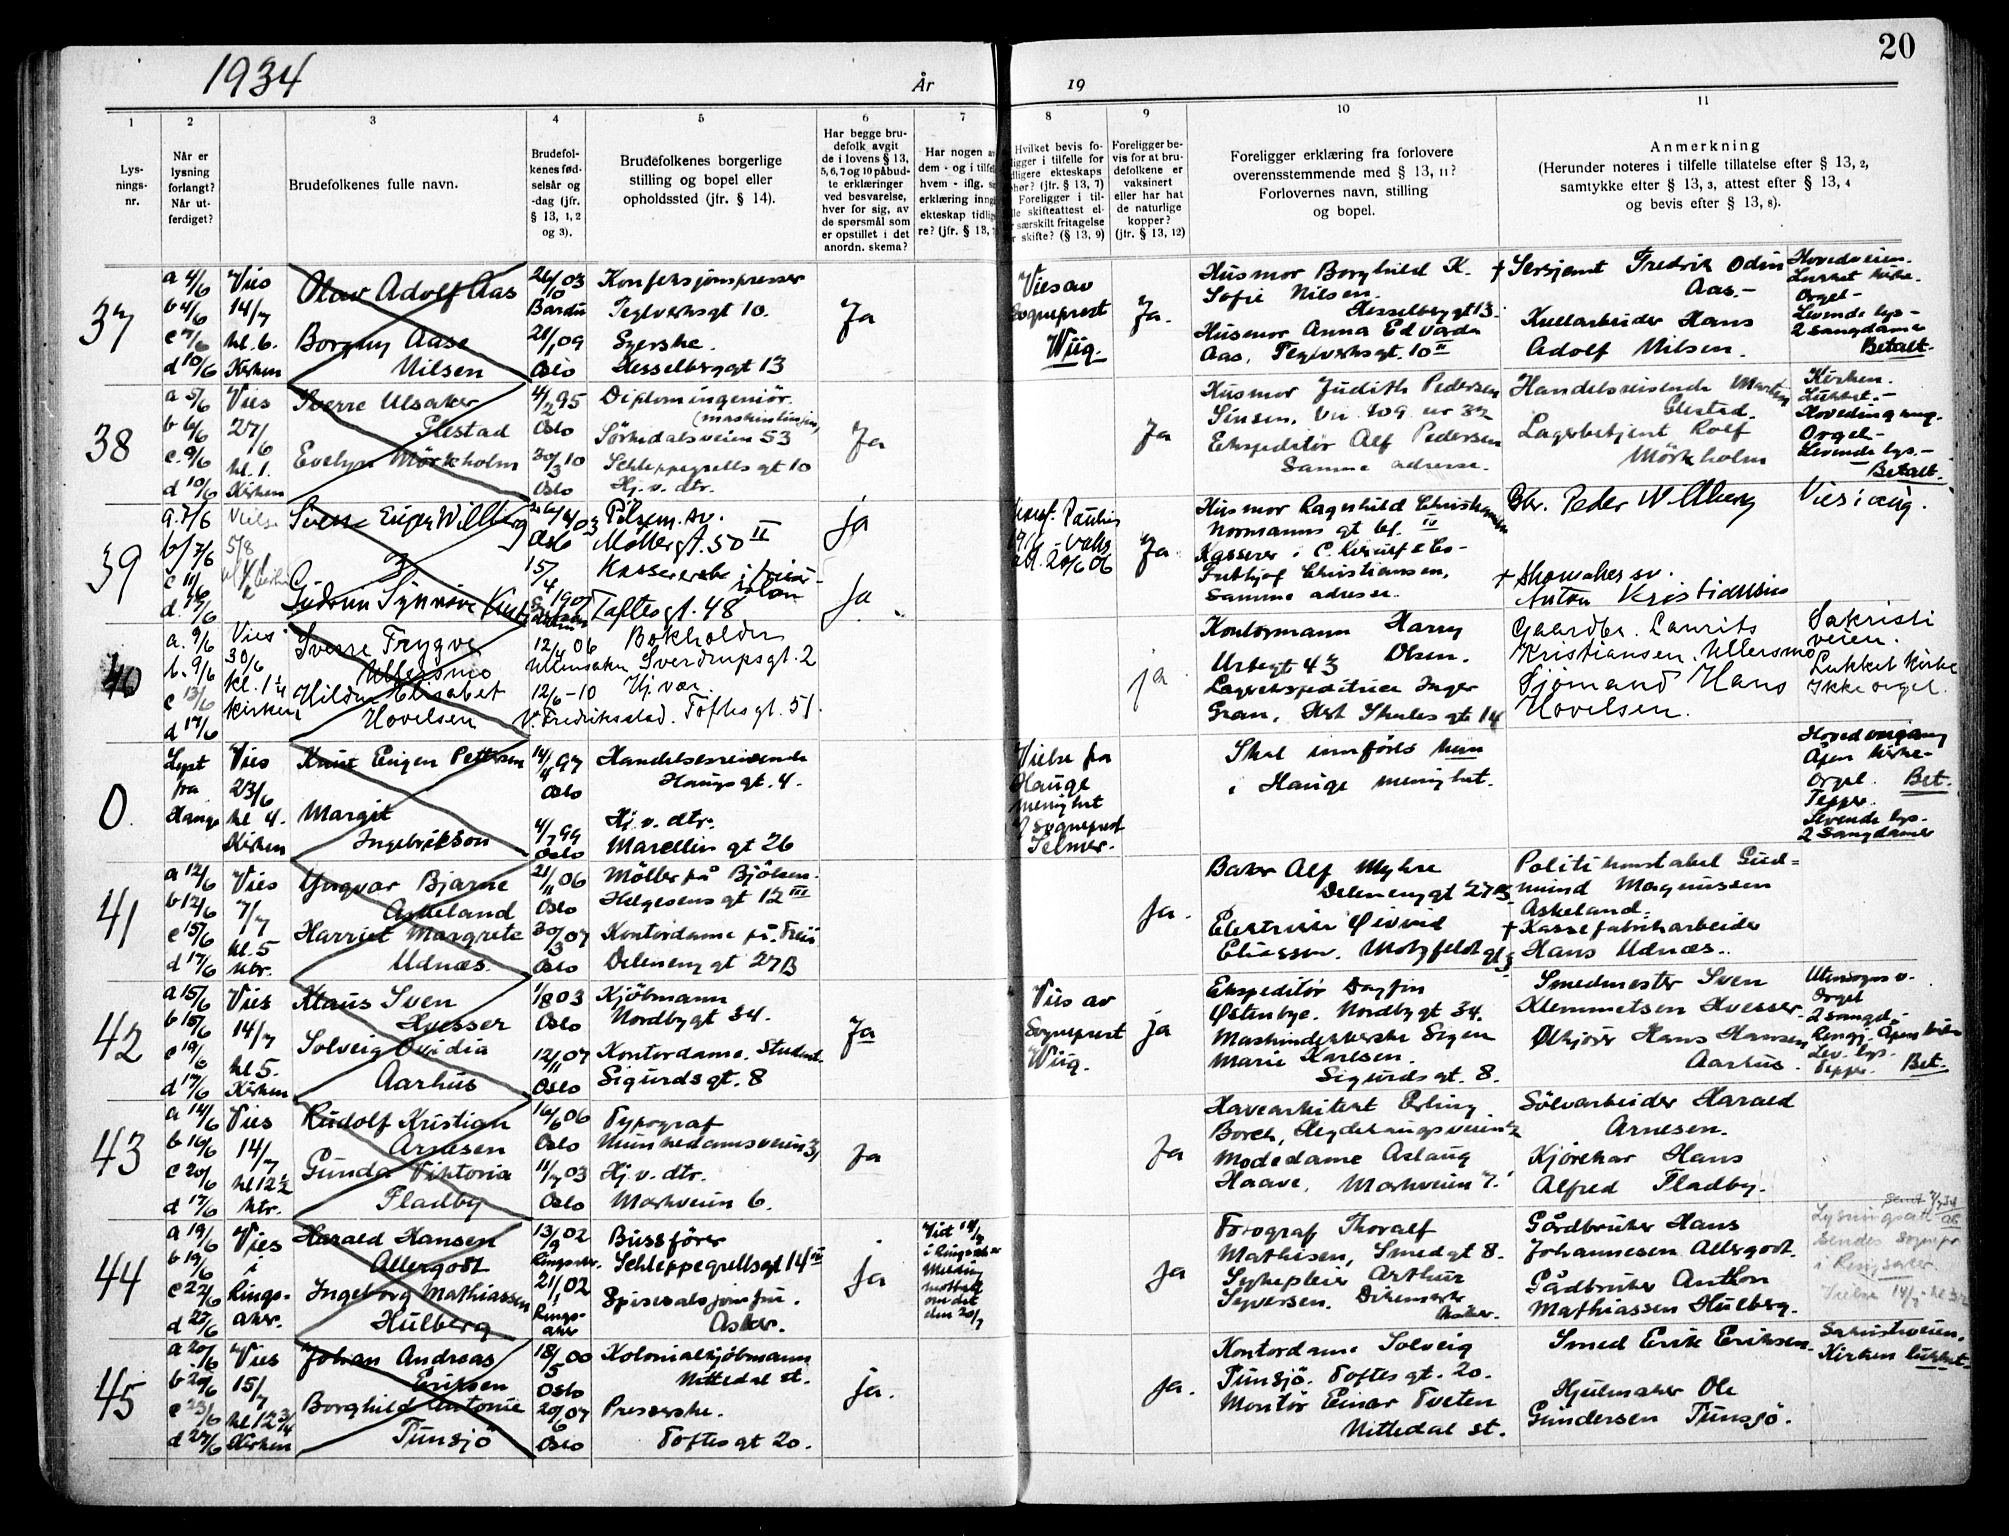 20
1934
År
19
1
2
3
4
5
6
7
8
9
10
11
Lys-
nings-
nr.
Når er
lysning
forlangt?
Når ut-
ferdiget?
Brudefolkenes fulle navn.
Brudefol-
kenes fød-
selsår og
-dag (jfr.
§ 13, 1, 2
og 3).
Brudefolkenes borgerlige
stilling og bopel eller
opholdssted (jfr. § 14).
Har begge bru-
defolk avgit
de i lovens § 13,
5, 6, 7 og 10 påbud-
te erklæringer
ved besvarelse,
hver for sig, av
de spørsmål som
er opstillet i det
anordn. skema?
Har nogen
dem - og i tilfelle
hvem - iflg.
erklæring inng
ekteskap tidlig
re? (jfr. § 13,
Hvilket bevis fo-
ligger i tilfelle for
dligere ekteskaps
phør? (jfr. § 13, 7)
Foreligger i til-
lle skifteattest el-
særskilt fritagelse
skifte? (§ 13, 9)
Foreligger be-
vis for at bru-
defolkene er
vaksinert
eller har hat
de naturlige
kopper?
(jfr. § 13, 12)
Foreligger erklæring fra forlovere
overensstemmende med § 13, 11?
Forlovernes navn, stilling
og bopel.
Anmerkning
(Herunder noteres i tilfelle tillatelse efter § 13, 2,
samtykke efter § 13, 3, attest efter § 13, 4
og bevis efter § 13, 8).
37
a 4/6 Vies
b 4/6 14/7
c 7/6 kl. 6.
d 10/6 Kirken
Olav Adolf Aas
Borgny Aase
Nilsen
26/10 03
Bardu
21/1 09
Oslo
Konfeksjonspresser
Teglverksgt 10.
Syerske.
Hesselberggt 13
Ja
Vies av
Sogneprest
Wiig.
Ja.
Husmor Borghild K.
Sofie Nilsen.
Hesselberggt 13.
Husmor Anna Edvarda
Aas, Teglverksgt. 10 II
+ Sersjant Fredrik Odin
Aas.-
Kullarbeider Hans
Adolf Nilsen.
Hovedveien.
Lukket kirke.
Orgel -
Levende lys -
2 sangdamer
Betalt.
38
a 5/6 Vies
b 6/6 27/6
c. 9/6 kl. 1.
d 10/6 Kirken
Sverre Ulsaker
Glestad
Evelyn Mörkholm
4/2 95
Oslo
30/3 10
Oslo
Diplomingeniör.
(maskinlinjen)
Sörkedalsveien 53
Schleppegrells gt 10
Hj. v. dtr.
Ja
Ja
Husmor Judith Pedersen
Sinsen, Vei 809 nr 32
Ekspeditör Alf Pedersen
Samme adresse.
Handelsreisende Martin
Glestad.
Lagerbetjent Rolf
Mörkholm
Kirken.
Lukket.-
Hovedinggang.
Orgel-
Levende lys.-
Betalt.
39
a. 7/6 Vielse
b/ 7/6 5/8
c 11/6
d. 17/6
Sverre Wilberg
Gudrun Synnöve
26/4 03
Oslo
15/4 1907
Pölsem. av.
Möllergt. 50 II
Kassererske i frisör-
salon
Toftesgt. 48
ja
ja
Ja
Husmor Ragnhild Christiansen
Normanns gt 61. IV
Kasserer i
Fritjof Christiansen,
Samme adresse.
Gbr. Peder Wilberg
+ Skomaker sv.
Anton Kristiansen
Vies i aug.
40
a. 9/6 Vies
b. 9/6 30/6
c 13/6 kl. 1 1/4
d 17/6 Kirken
Sverre Trygve
Ullersmo
Hildur Elisabet
Hovelsen
12/4 06
Ullensaker
12/6-10
V. Fredrikstad.
Bokholder
Sverdrupsgt. 2
Hj vær
Toftesgt. 51.
ja
Kontormann Harry
Olsen.
Urtegt 43
Lagerekspeditrice Inger
Gran, Hert Skules gt 14
Gaardbr. Laurits
Kristiansen Ullersmo
Sjömand Hans
Hovelsen.
Sakristi
veien.
Lukket kirke
Ikke orgel.
0.
Lyst Vies
fra 23/6
Hauge kl 4.
Kirken
Knut Eugen Pettersen
Margit
Ingebrikson
14/4 97
Oslo
4/7 99
Oslo
Handelsreisende
Haugsgt. 4.
Hj. v. dtr.
Marcellin gt 26
Vielse fra
Hauge
menighet
v/ sogneprest
Selmer.
Skal innföres kun
i Hauge menighet.
Hovedinngang
Åpen kirke-
Orgel. Bet.
Tepper.
Levende lys.
2 sangdamer
41
a 12/6 Vies
b 12/6 7/7
c 15/6 kl. 5
d 17/6 ktr.
Yngvar Bjarne
Askeland
Harriet Margrete
Udnæs.
21/11 06
Oslo
30/3 07
Oslo
Möller på Bjölsen.
Helgesens gt 12 III
Kontordame på Freia
Delenenggt 27B
Ja.
Baker Alf Myhre
Delenenggt 27B
Elektriker Øivind
Eliassen. Motzfeldtgt 3
Politikonstabel Gud=
mund Magnussen
Askeland=
+ Kassefabrikarbeider
Hans Udnæs..
42
a 15/6 Vies
b 15/6 14/7
c 19/6 kl 5.
d 17/6 Kirken
Klaus Sven
Hvesser
Solveig Ovidia
Aarhus
1/8 03
Oslo
12/11 07
Oslo
Kjöbmann
Nordbygt 34.
Kontordame. Student
Sigurdsgt. 8
Ja
Vies av
Sogneprest
Wiig.
ja
Ekspeditör Dagfin
Østenbye. Nordbygt 34.
Maskinstrikkerske Signe
Marie Karlsen.
Sigurdsgt. 8.
Smedmester Sven
Klemmetsen Hvesser.
Ölkjörer Hans Hansen
Aarhus.
Utensogns v.
Orgel
2 sangd.-
Ringj. Åpen kirke
Lev. lys.
Tepper. Bet.
43
a 14/6 Vies
b 16/6 14/7
c 20/6 kl 12 1/2
d 17/6 ktr.
Rudolf Kristian
Arnesen
Gunda Viktoria
Fladby
16/6 06
Oslo
11/7 03
Oslo
Typograf
Munkedamsveien 3,
Hj. v. dtr.
Markveien 6.
Ja
Ja
Havearkitekt Erling
Borch, Hegdehaugsveien 2
Modedame Aslaug
Haave, Markveien 7.
Sölvarbeider Harald
Arnesen.
Kjörekar Hans
Alfred Fladby.
44
a 19/6 Vies
b 19/6 i
c 22/6 Rings-
d 27/6 aker.
Harald Hansen
Allergodt
Ingeborg Mathiassen
Hulberg
13/9 02
Ringsaker.
21/1 02
Rings-
aker
Bussförer
Schleppegrellsgt 14 III
Spisesalsjomfru.
Asker.
ja
Viet 14/7
i Ringsaker
Melding
mottatt
om det
den 20/7
ja
Fotograf Thoralf
Mathisen, Smedgt 8.
Sykepleier Arthur
Syversen. Dikemark
Asker.
Gårdbruker Hans
Johannesen Allergodt.
Gårdbruker Anthon
Mathiassen Hulberg.
Sendt 2/7 34
Lysningsatt
sendes sognepr
i Ringsaker.
Vielse 14/7 kl 3 1/2
45
a 20/6 Vies
b 20/6 15/7
c 23/6 kl 12 3/4
d 27/6 Kirken
Johan Andreas
Eriksen
Borghild Antonie
Tunsjö
18/5 00
Oslo
20/6 07
Oslo
Kolonialkjöbmann
Nittedal st.
Presserske.
Toftesgt 20.
ja.
Ja.
Kontordame Solveig
Tunsjö. Toftesgt. 20.
Montör Einar Tveten
Nittedal st.
Smed Erik Eriksen.
Hjulmaker Ole
Gundersen Tunsjö.
Sakristiveien.
Kirken lukket.